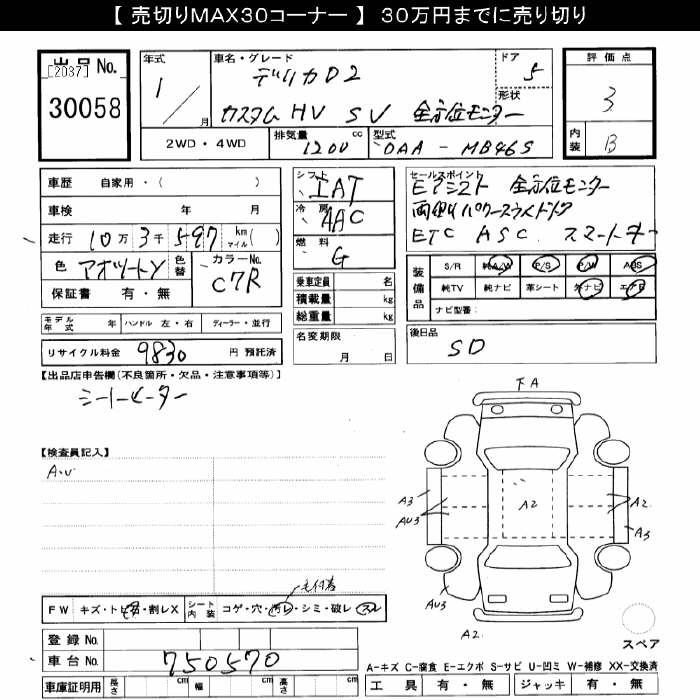 【 売切りMAX30コーナー 】 30万円までに売り切り
出品No.
[2037]
30058
年式
1／ 月
車名・グレード
デリカD2
カスタム HV SV 全方位モニター
ドア
5
形状
評価点
3
内装
B
2WD・4WD
排気量 1200 cc
型式 DAA - MB46S
車歴 自家用・( )
車検 年 月
走行 10万3千597 km マイル( )
色 アオツートン
色替
カラーNo.
C7R
保証書 有・無
シフト IAT
冷房 AAC
燃料 G
乗車定員 名
積載量 kg
総重量 kg
セールスポイント
Eアシスト 全方位モニター
両側パワースライドドア
ETC ASC スマートキー
装備品
S/R 純A/W P/S P/W ABS
純TV 純ナビ 革シート 外ナビ エアB
ナビ型番:
モデル年式 年 ハンドル 左・右 ディーラー・並行
リサイクル料金 9830 円 預託済
名変期限
月 日
後日品
SD
【出品店申告欄(不良箇所・欠品・注意事項等)】
シートヒーター
【検査員記入】
A.U
FA
A3
AU3
A2
A2
A3
AU3
A2
スペア
FW キズ・トビ石・割レX
シート内装 コゲ・穴・汚レ・シミ・破レ スレ
毛付着
登録No.
車台No. 750570
車庫証明用 長さ cm 幅 cm 高さ cm
A-キズ C-腐食 E-エクボ S-サビ U-凹ミ W-補修 XX-交換済
工具 有・無 ジャッキ 有・無